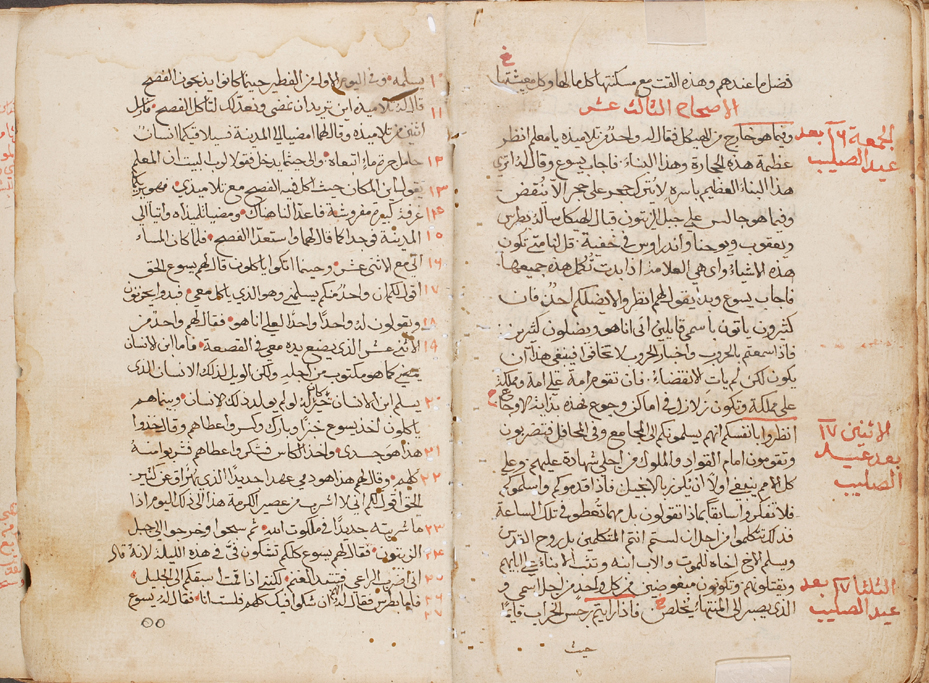 فضل ما عندهم وهذه القت مع مسكنتها كل مالها وكل معيشتها
الاصحاح الثالث عشر
الجمعة ١٦ بعد
عيد الصليب
وفيما هو خارج من الهيكل فقال له واحد من تلاميذه يا معلم انظر
عظمة هذه الحجارة وهذا البناء فاجاب يسوع وقال له اترى
هذا البناء العظيم باسره لا يترك حجر على حجر الا نقض
وفيما هو جالس على جبل الزيتون قبال الهيكل سأله بطرس
ويعقوب ويوحنا واندراوس في خفية قل لنا متى تكون
هذه الاشياء واي هي العلامة اذا بدت تكمل هذه جميعها
فاجاب يسوع وبدى يقول لهم انظروا لا يضلكم احد فان
كثيرون ياتون باسمي قايلين اني انا هو ويضلون كثيرين
فاذا سمعتم بالحروب واخبار الحروب لا تخافوا فينبغي هذا ان
يكون لكن لم يات الانقضاء فان تقوم امة على امة ومملكة
على مملكة وتكون زلازل في اماكن وجوع فهذه بداية الاوجاع
الاثنين ١٧
بعد عيد
الصليب
انظروا بانفسكم انهم يسلمونكم الى المجامع وفي المحافل فتضربون
وتقومون امام القواد والملوك من اجلي شهادة عليهم وعلى
كل الامم ينبغي اولا ان يكرز بالانجيل فاذا قدموكم واسلموكم
فلا تفكروا سابقا بماذا تقولون بل مهما تعطوا في تلك الساعة
فذلك تكلموا من اجل ان لستم انتم المتكلمين بل روح القدس
وسيلم الاخ اخاه للموت والاب ابنه وتثب الابناء على ابايهم
الثلثا ١٧ بعد
عيد الصليب
ويقتلونهم وتكونون مبغوضين من كل واحد من اجل اسمي و
الذي يصبر الى المنتها يخلص فاذا رايتم رجس الخراب قايما
حيث
١٠ يسلمه وفي اليوم الاول من الفطير حينما كانوا يذبحون الفصح
١١ قال له تلاميذه اين تريد ان نمضي ونعد لك لتاكل الفصح فارسل
اثنين من تلاميذه وقال لهما امضيا الى المدينة فسيلاقيكما انسان
١٣ حامل جرة ماء اتبعاه والى حيثما يدخل فقولا لرب البيت ان المعلم
١٣ يقول اين المكان حيث اكل فيه الفصح مع تلاميذي فهو يريكما
١٥ غرفة كبيرة مفروشة فاعدا لنا هناك ومضيا تلميذاه واتيا الى
١٥ المدينة فوجدا كما قال لهما واستعدا الفصح فلما كان المساء
١٦ اتى مع الاثنى عشر وحينما اتكوا ياكلون قال لهم يسوع الحق
١٧ اقول لكم ان واحد منكم يسلمني وهو الذي ياكل معي فبدوا يحزنون
١٨ ويقولون له واحدا واحدا لعلي انا هو فقال لهم واحد من
١٩ الاثنى عشر الذي يضع يده معي في القصعة فاما ابن الانسان
يمضي كما هو مكتوب من اجله ولكن الويل لذلك الانسان الذي
٢٠ يسلم ابن الانسان خير كان له لو لم يولد ذلك الانسان وبينما هم
ياكلون اخذ يسوع خبزا وبارك وكسر واعطاهم وقال خذوا
٢١ هذا هو جسدي واخذ الكاس فشكر واعطاهم فشربوا منه
٢٢ كلهم وقال لهم هذا هو دمي عهد جديد الذي يهراق عن كثير
الحق اقول لكم اني لا اشرب من عصير الكرمة هذا الى ذلك اليوم اذا
٢٣ ما شربته جديدا في ملكوت الله ثم سبحوا وخرجوا الى جبل
٢٤ الزيتون فقال لهم يسوع كلكم تشكون في في هذه الليلة لانه قال
٢٥ اني اضرب الراعي فتتبدد الغنم لكنني اذا قمت اسبقكم الى الجليل
٢٦ فاما بطرس فقال له ان شكوا فيك كلهم فلست انا فقال له يسوع
٢٧